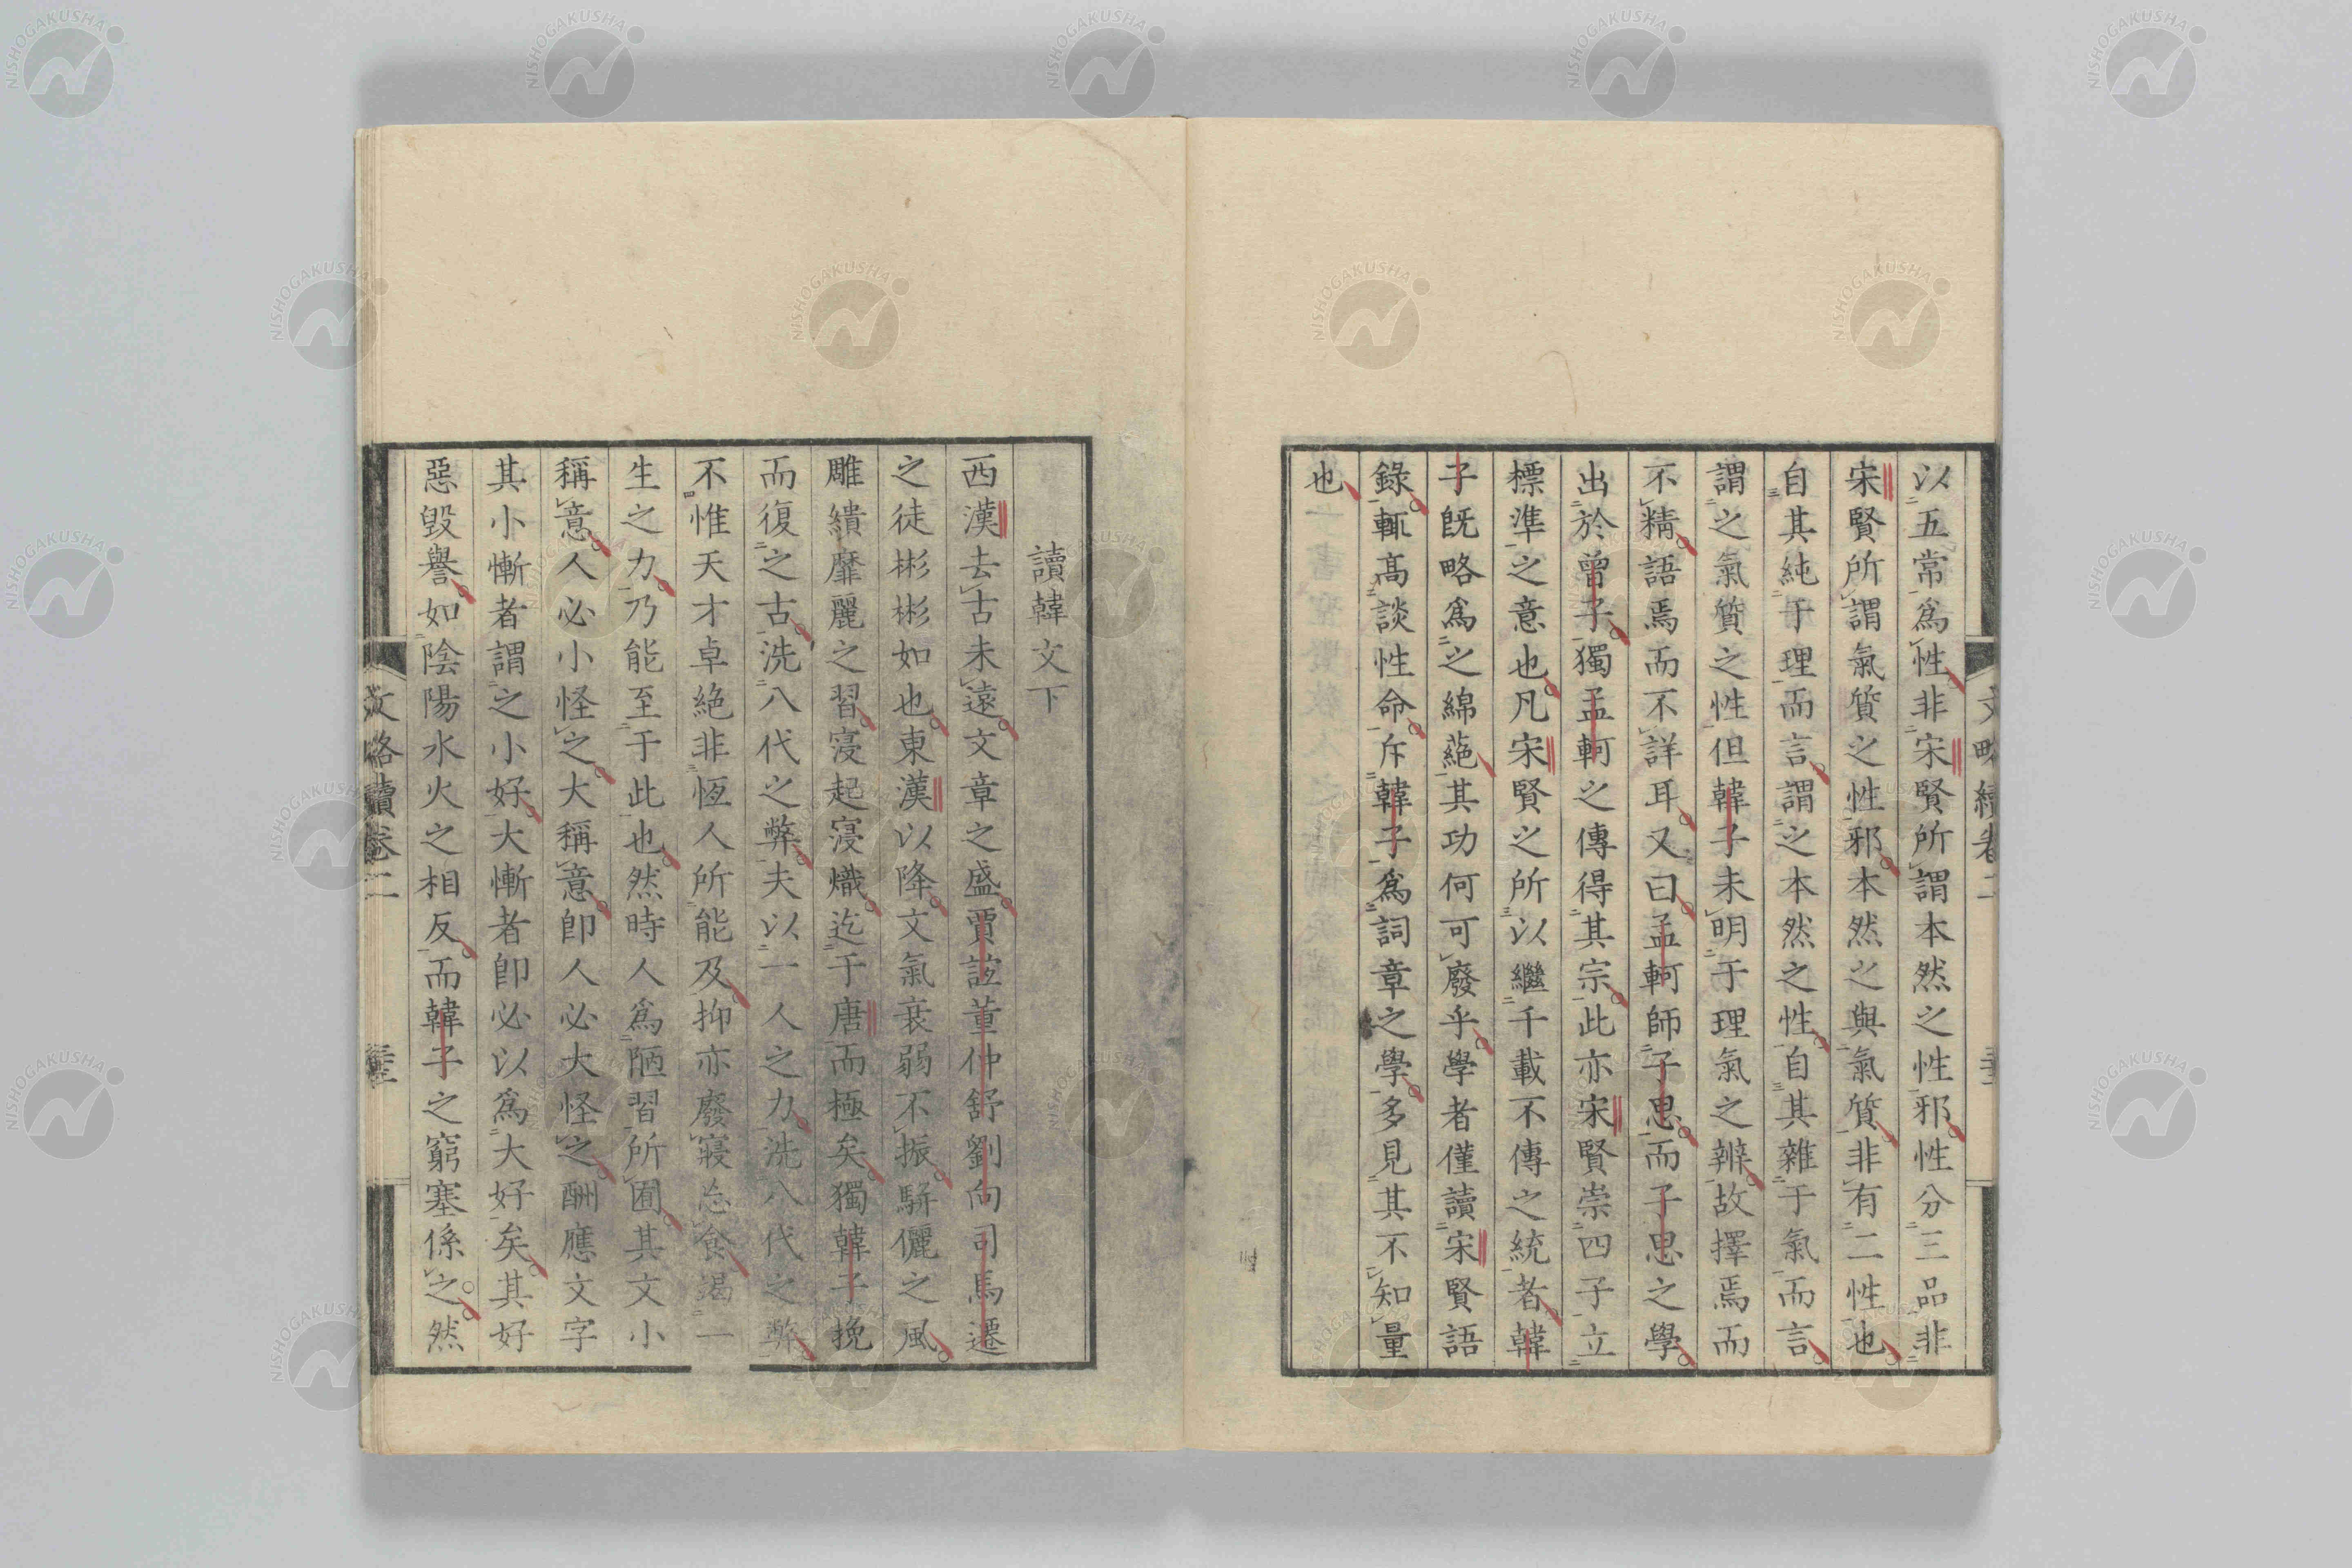 以五常爲性非宋賢所謂本然之性邪性分三品非
宋賢所謂氣質之性邪本然之與氣質非有二性也
自其純于理而言謂之本然之性自其雜于氣而言
謂之氣質之性但韓子未明于理氣之辨故擇焉而
不精語焉而不詳耳又曰孟軻師子思而子思之學
出於曾子獨孟軻之傳得其宗此亦宋賢崇四子立
標準之意也凡宋賢之所以繼千載不傳之統者韓
子既略爲之綿蕝其功何可廢乎學者僅讀宋賢語
錄輒高談性命斥韓子爲詞章之學多見其不知量
也
讀韓文下
西漢去古未遠文章之盛賈誼董仲舒劉向司馬遷
之徒彬彬如也東漢以降文氣衰弱不振駢儷之風
雕繢靡麗之習寖起寖熾迄于唐而極矣獨韓子挽
而復之古洗八代之弊夫以一人之力洗八代之弊
不惟天才卓絕非恆人所能及抑亦廢寢忘食竭一
生之力乃能至于此也然時人爲陋習所囿其文小
稱意人必小怪之大稱意卽人必大怪之酬應文字
其小慚者謂之小好大慚者卽必以爲大好矣其好
惡毀譽如陰陽水火之相反而韓子之窮塞係之然
文略續卷二
NISHOGAKUSHA